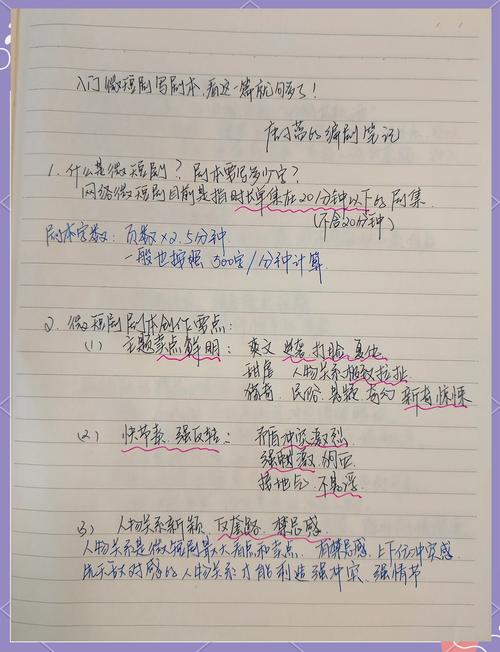 入门微短剧写剧本,看这一篇就够了!
的编剧笔记
1. 什么是微短剧?剧本要写多少字?
网络微短剧目前是指时长单集在20分钟以下的剧集.
(不含20分钟)
剧本字数:页数×2.5分钟
一般也按照 300字/分钟计算.
2. 微短剧剧本创作要点:
(1) 主题卖点鲜明: 爽文 逆袭 打脸 复仇
甜宠 人物关系 极致拉扯
猎奇 民俗 悬疑 奇幻 新奇惊悚
(2) 快节奏 强反转: 矛盾冲突激烈
强刺激
接地气 不悬浮
3) 人物关系新颖 反套路 禁忌感.
人物关系是微短剧最大看点和卖点. 有禁忌感,上下位冲突感
既不敌对感的人物关系才能制造强冲突、强情节